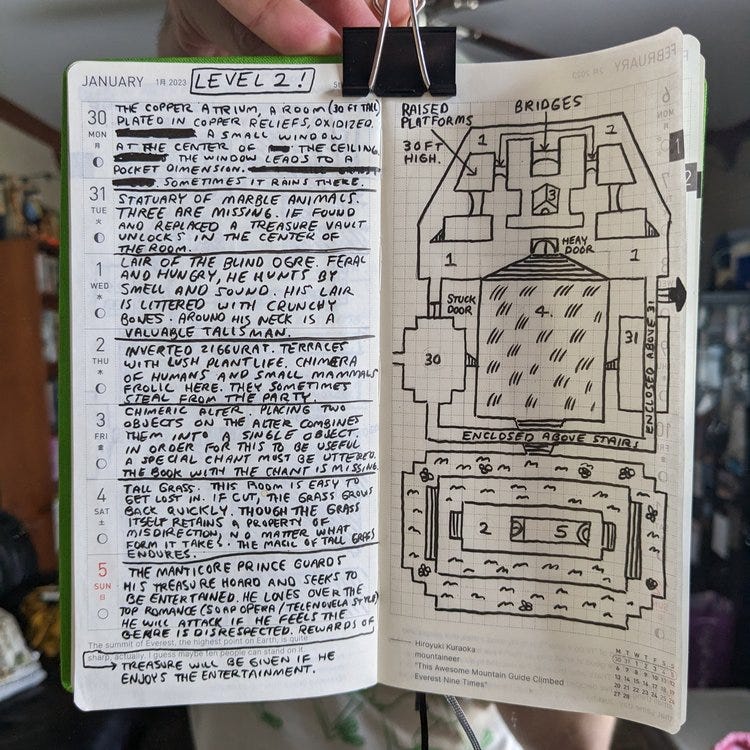 JANUARY 1月 2023 LEVEL 2!
30 MON 月
THE COPPER ATRIUM, A ROOM (30 FT TALL)
PLATED IN COPPER RELIEFS, OXIDIZED.
A SMALL WINDOW
AT THE CENTER OF THE CEILING.
THE WINDOW LEADS TO A
POCKET DIMENSION.
SOMETIMES IT RAINS THERE.
31 TUE 火
STATUARY OF MARBLE ANIMALS.
THREE ARE MISSING. IF FOUND
AND REPLACED A TREASURE VAULT
UNLOCKS IN THE CENTER OF
THE ROOM.
1 WED 水
LAIR OF THE BLIND OGRE. FERAL
AND HUNGRY, HE HUNTS BY
SMELL AND SOUND. HIS LAIR
IS LITTERED WITH CRUNCHY
BONES. AROUND HIS NECK IS A
VALUABLE TALISMAN.
2 THU 木
INVERTED ZIGGURAT. TERRACES
WITH LUSH PLANTLIFE. CHIMERA
OF HUMANS AND SMALL MAMMALS
FROLIC HERE. THEY SOMETIMES
STEAL FROM THE PARTY.
3 FRI 金
CHIMERIC ALTER. PLACING TWO
OBJECTS ON THE ALTER COMBINES
THEM INTO A SINGLE OBJECT.
IN ORDER FOR THIS TO BE USEFUL
A SPECIAL CHANT MUST BE UTTERED.
THE BOOK WITH THE CHANT IS MISSING.
4 SAT 土
TALL GRASS. THIS ROOM IS EASY TO
GET LOST IN. IF CUT, THE GRASS GROWS
BACK QUICKLY. THOUGH THE GRASS
ITSELF RETAINS A PROPERTY OF
MISDIRECTION, NO MATTER WHAT
FORM IT TAKES. THE MAGIC OF TALL GRASS
ENDURES.
5 SUN 日
THE MANTICORE PRINCE GUARDS
HIS TREASURE HOARD AND SEEKS TO
BE ENTERTAINED. HE LOVES OVER THE
TOP ROMANCE (SOAP OPERA/TELENOVELA STYLE)
HE WILL ATTACK IF HE FEELS THE
GENRE IS DISRESPECTED. REWARDS OF
The summit of Everest, the highest point on Earth, is quite
sharp, actually. I guess maybe ten people can stand on it.
TREASURE WILL BE GIVEN IF HE
ENJOYS THE ENTERTAINMENT.
RAISED
PLATFORMS
30FT
HIGH.
BRIDGES
1
1
3
1
HEAVY
DOOR
1
STUCK
DOOR
4.
30
31
ENCLOSED ABOVE 31
ENCLOSED ABOVE STAIRS
2
5
Hiroyuki Kuraoka
mountaineer
"This Awesome Mountain Guide Climbed
Everest Nine Times"
M T W T F S S
30 31 1 2 3 4 5
6 7 8 9 10 11 12
13 14 15 16 17 18 19
20 21 22 23 24 25 26
27 28
1
2